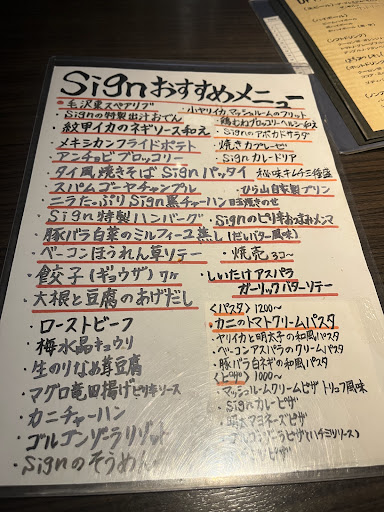 Signおすすめメニュー
・毛沢東スペアリブ
・小ヤリイカ、マッシュルームのフリット
・Signの特製出汁おでん
・鶏むねブロッコリーヘルシー和え
・紋甲イカのネギソース和え
・Signのアボカドサラダ
・メキシカンフライドポテト
・焼きカプレーゼ
・アンチョビブロッコリー
・Signカレードリア
・タイ風焼きそばSignパッタイ
・秘味キムチ三種盛
・スパムゴーヤチャンプル
・ひら山自家製プリン
・ニラたっぷりSign黒チャーハン目玉焼きのせ
・Sign特製ハンバーグ
・Signのピリ辛おつまみメンマ
・豚バラ白菜のミルフィーユ蒸し(だしバター風味)
・ベーコンほうれん草リテー
・焼売 3コ〜
・餃子(ギョウザ)7ヶ
・しいたけアスパラ
ガーリックバターソテー
・大根と豆腐のあげだし
・ローストビーフ
・梅水晶キュウリ
・生のりなめ茸豆腐
・マグロ竜田揚げピリ辛ソース
・カニチャーハン
・ゴルゴンゾーラリゾット
・Signのそうめん
〈パスタ〉1200〜
・カニのトマトクリームパスタ
・ヤリイカと明太子の和風パスタ
・ベーコンアスパラのクリームパスタ
・豚バラ白ネギの和風パスタ
〈ピザ〉1000〜
・マッシュルームクリームピザ トリュフ風味
・Signカレーピザ
・明太マヨネーズピザ
・ゴルゴンゾーラピザ(ハチミツソース)
ピザ